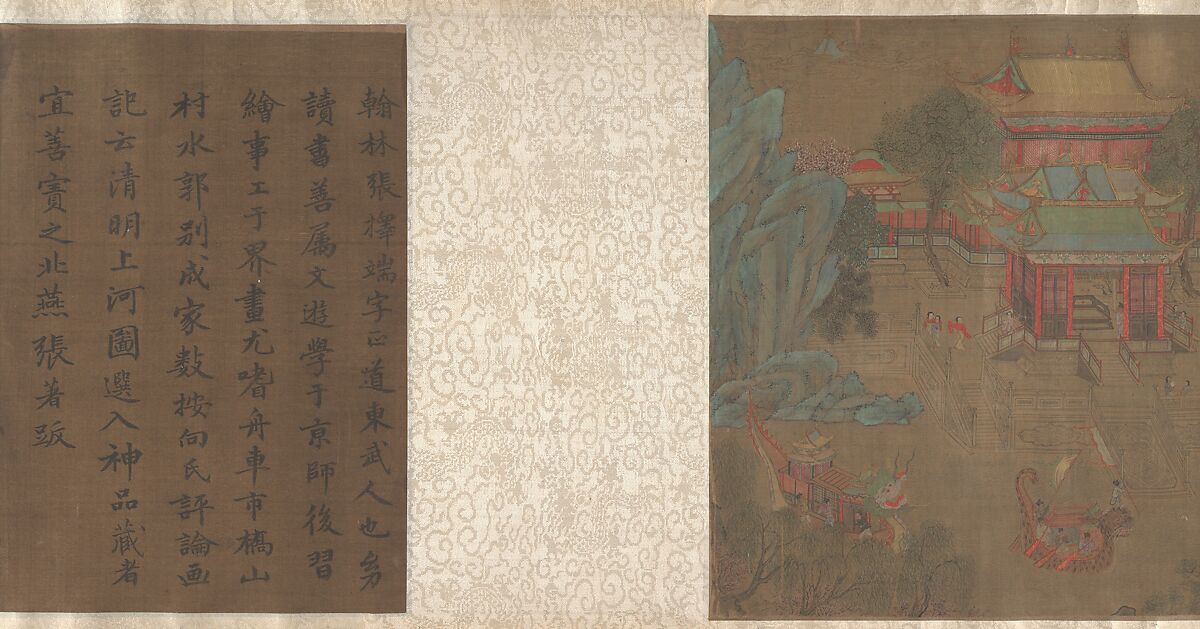 翰林張擇端字正道東武人也幼
讀書善属文遊學于京師後習
繪事工于界畫尤嗜舟車市橋山
村水郭別成家數按向氏評論画
記云清明上河圖選入神品藏者
宜善寶之北燕張著跋